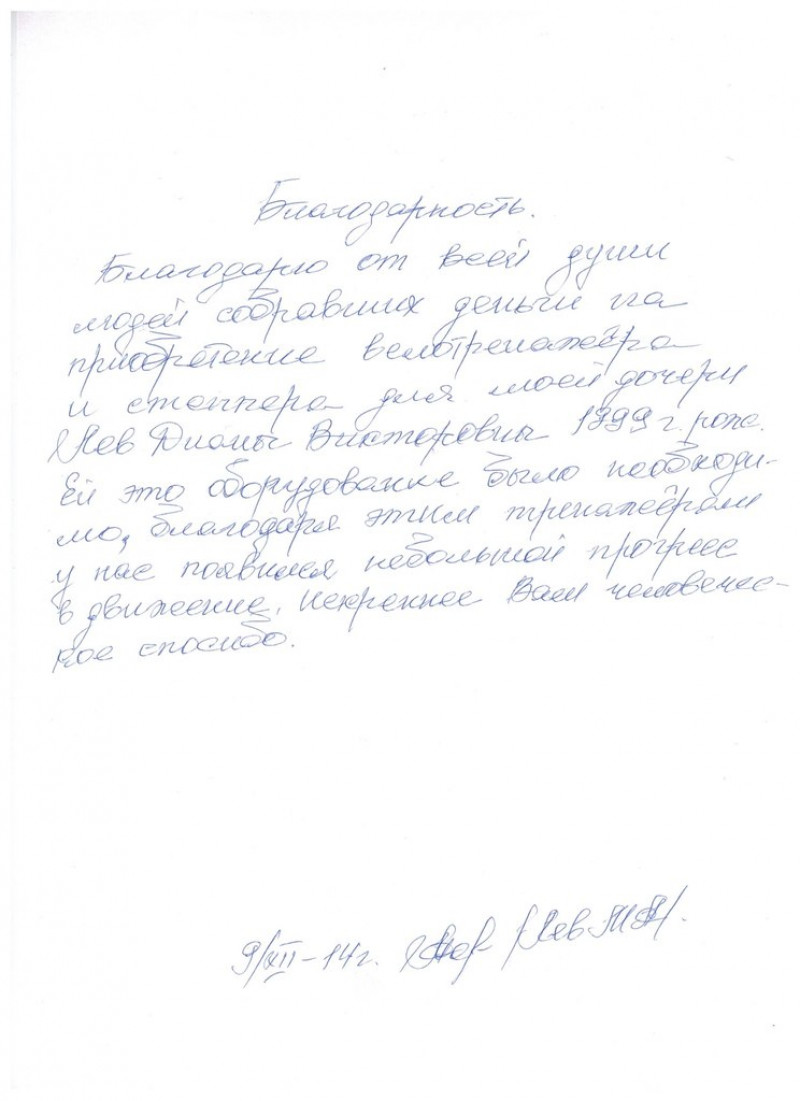 Благодарность.
Благодарю от всей души
людей собравших деньги на
приобретение велотренажёра
и степпера для моей дочери
Лев Дианы Викторовны 1999 г. рож.
Ей это оборудование было необходи-
мо, благодаря этим тренажёрам
у нас появился небольшой прогресс
в движение. Искреннее Вам человечес-
кое спасибо.
9/XII-14г. Лев